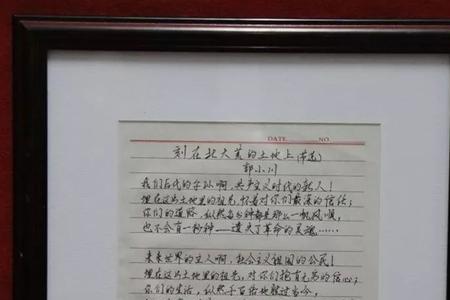 DATE NO.
刻在北大荒的土地上(节选)
郭小川
我们后代的子孙啊,共产主义时代的新人!
埋在这片土地里的祖先,怀着对你们最深的信任;
你们的道路,纵然每分钟都是那么一帆风顺,
也不会有一秒钟——遗失了革命的灵魂……
未来世界的主人啊,社会主义祖国的公民!
埋在这片土地里的祖先,对你们抱有无穷的信心;
你们的生活,纵然千百倍地胜过当今,